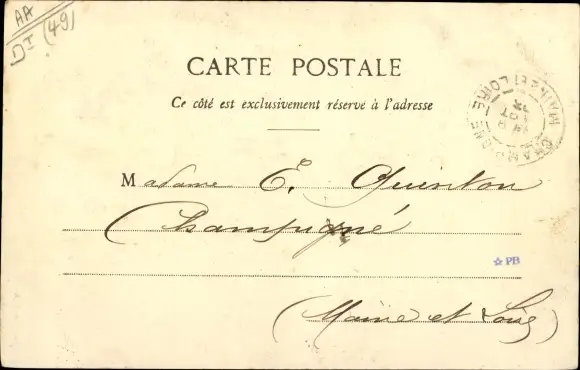 AA
DI (49)
CARTE POSTALE
Ce côté est exclusivement réservé à l'adresse
Madame E. Quinton
Champigné
☆ PB
(Maine et Loire)
CHAMPIGNÉ
MAINE ET LOIRE